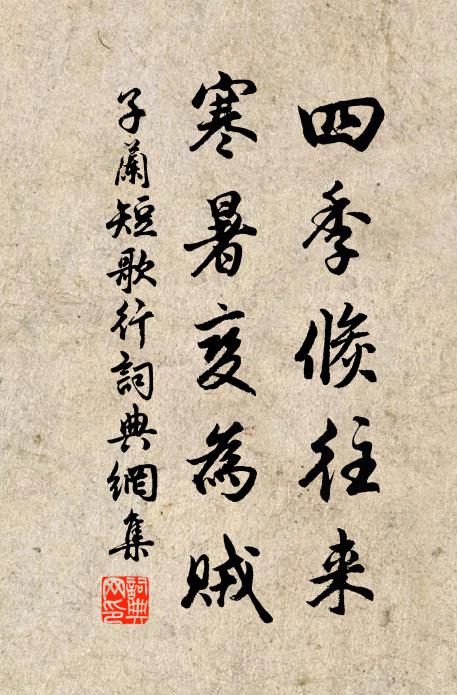 四季倏往来
寒暑变為贼
子蘭短歌行詞典網集
詞典網印